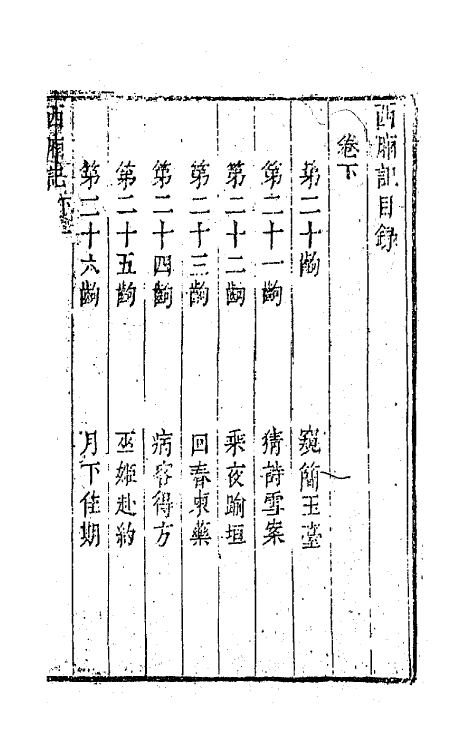 西廂記目錄
卷下
第二十齣 窺簡玉臺
第二十一齣 猜詩雪案
第二十二齣 乘夜踰垣
第二十三齣 回春柬藥
第二十四齣 病客得方
第二十五齣 巫姬赴約
第二十六齣 月下佳期
西廂記